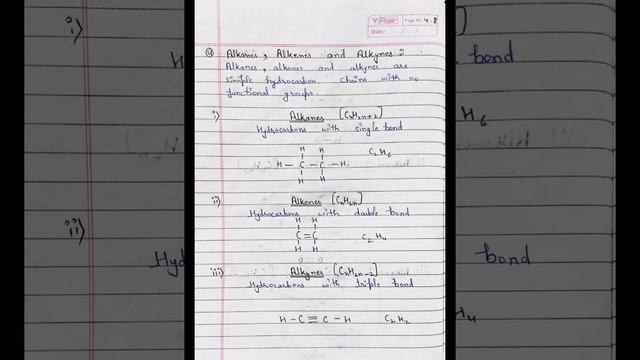 Flair
Page No. 4-8
Date: / /
4) Alkanes, Alkenes and Alkynes :
Alkanes, alkenes and alkynes are
simple hydrocarbon chains with no
functional groups
i) Alkanes [CnH2n+2]
Hydrocarbons with single bond
H H
H - C - C - H C2H6
H H
ii) Alkenes [CnH2n]
Hydrocarbons with double bond
H H
C = C C2H4
H H
iii) Alkynes [CnH2n-2]
Hydrocarbons with triple bond
H - C ≡ C - H C2H2
i)
bond
H6
ii)
Hyd
bond
H4